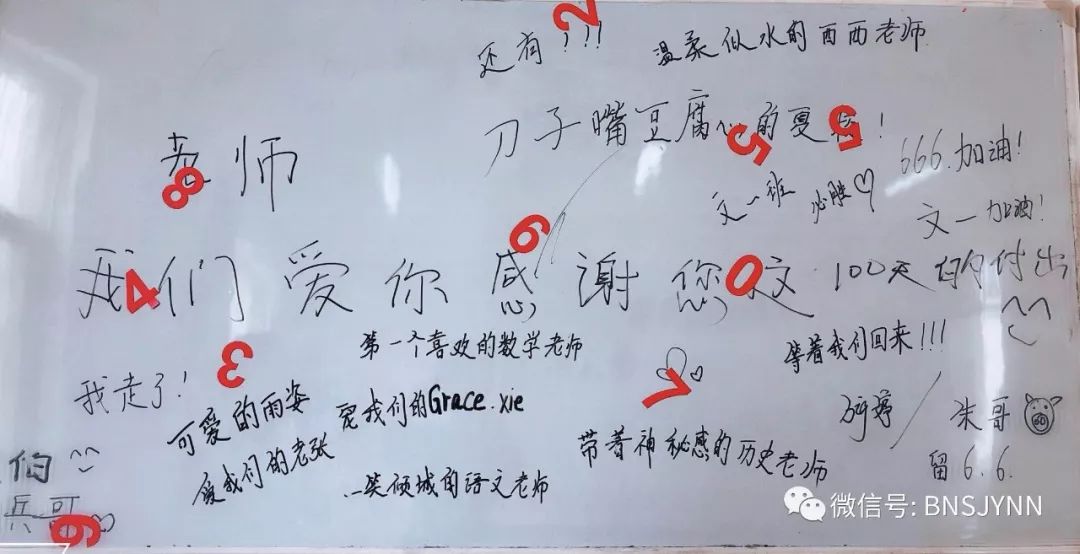 还有!!!
温柔似水的西西老师
刀子嘴豆腐心的夏
老师
666.加油!
文一班 必胜♡
文一加油!
我们爱你感谢您这100天的付出
第一个喜欢的数学老师
等着我们回来!!!
我走了!
可爱的雨姿
宠我们的Grace.xie
爱我们的老张
一笑倾城的语文老师
带着神秘感的历史老师
朱哥
留6.6.
兵哥
2
5
5
8
6
4
0
3
7
6
微信号: BNSJYNN